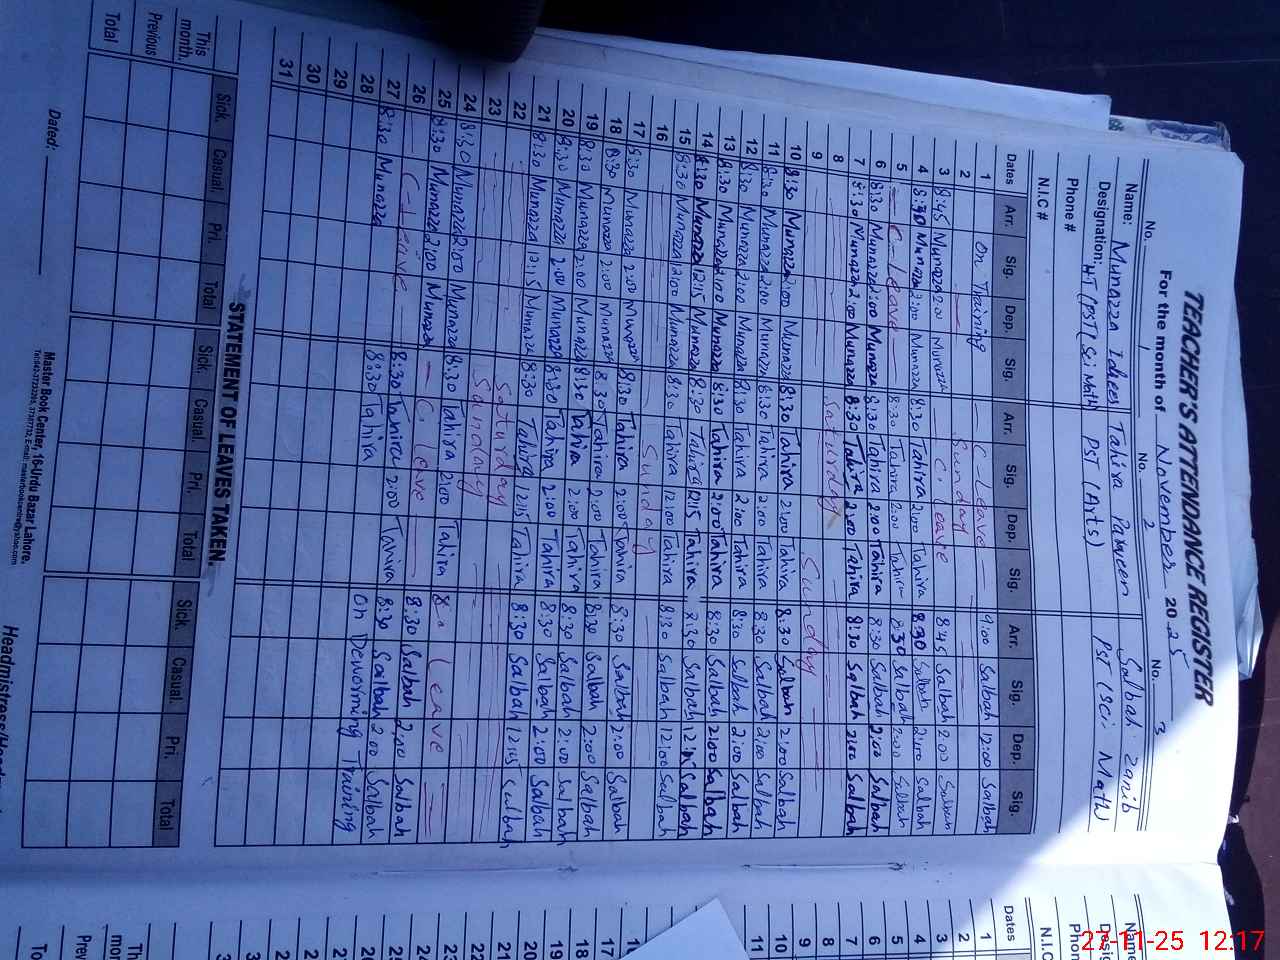 TEACHER'S ATTENDANCE REGISTER
For the month of November 2025
No. 1 No. 2 No. 3
Name: Munazza Tahira Parveen Salbah Zanib
Designation: HT (PST) Sci Math PST (Arts) PST (Sci Math)
Phone #
N.I.C #
Dates Arr. Sig. Dep. Sig. Arr. Sig. Dep. Sig. Arr. Sig. Dep. Sig.
1 On Training C-Leave 9:00 Salbah 12:00 Salbah
2 Sunday
3 8:45 Munazza Munazza C. Leave 8:45 Salbah 2:00 Salbah
4 8:30 Munazza 2:00 Munazza 8:30 Tahira 2:00 Tahira 8:30 Salbah 2:00 Salbah
5 C-Leave 8:30 Tahira 2:00 Tahira 8:30 Salbah 2:00 Salbah
6 8:30 Munazza 2:00 Munazza 8:30 Tahira 2:00 Tahira 8:30 Salbah 2:00 Salbah
7 8:30 Munazza 2:00 Munazza 8:30 Tahira 2:00 Tahira 8:30 Salbah 2:00 Salbah
8 Saturday
9 Sunday
10 8:30 Munazza 2:00 Munazza 8:30 Tahira 2:00 Tahira 8:30 Salbah 2:00 Salbah
11 8:30 Munazza 2:00 Munazza 8:30 Tahira 2:00 Tahira 8:30 Salbah 2:00 Salbah
12 8:30 Munazza 2:00 Munazza 8:30 Tahira 2:00 Tahira 8:30 Salbah 2:00 Salbah
13 8:30 Munazza 2:00 Munazza 8:30 Tahira 2:00 Tahira 8:30 Salbah 2:00 Salbah
14 8:30 Munazza 12:15 Munazza 8:30 Tahira 12:15 Tahira 8:30 Salbah Salbah
15 8:30 Munazza 12:00 Munazza 8:30 Tahira 12:00 Tahira 8:30 Salbah 12:00 Salbah
16 Sunday
17 8:30 Munazza 2:00 Munazza 8:30 Tahira 2:00 Tahira 8:30 Salbah 2:00 Salbah
18 8:30 Munazza 2:00 Munazza 8:30 Tahira 2:00 Tahira 8:30 Salbah 2:00 Salbah
19 8:30 Munazza 2:00 Munazza 8:30 Tahira 2:00 Tahira 8:30 Salbah 2:00 Salbah
20 8:30 Munazza 2:00 Munazza 8:30 Tahira 2:00 Tahira 8:30 Salbah 2:00 Salbah
21 8:30 Munazza 12:15 Munazza 8:30 Tahira 12:15 Tahira 8:30 Salbah Salbah
22 Saturday
23 Sunday
24 8:30 Munazza 2:00 Munazza 8:30 Tahira 2:00 Tahira Leave
25 8:30 Munazza 2:00 Munazza C. Leave 8:30 Salbah 2:00 Salbah
26 C-Leave 8:30 Tahira 2:00 Tahira 8:30 Salbah 2:00 Salbah
27 8:30 Munazza 8:30 Tahira On Deworming Training
28
29
30
31
STATEMENT OF LEAVES TAKEN.
Sick. Casual. Pri. Total Sick. Casual. Pri. Total Sick. Casual. Pri. Total
This month.
Previous
Total
Dated:
Master Book Center, 16-Urdu Bazar Lahore.
Headmistress/
Name
Phon
N.I.C
Dates
1
2
3
4
5
6
7
8
9
10
11
27-11-25 12:17